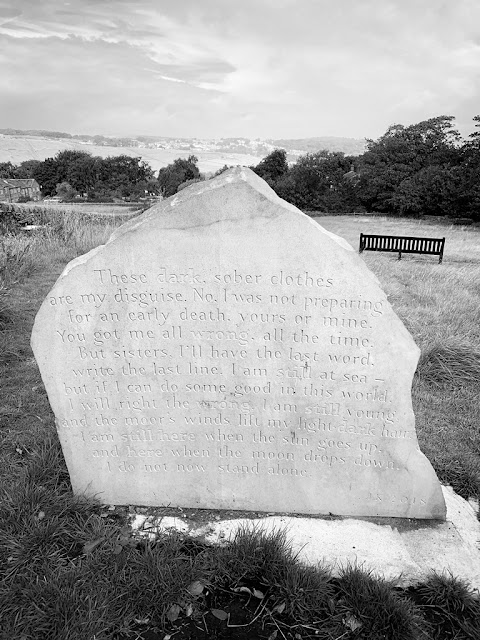 These dark, sober clothes
are my disguise. No, I was not preparing
for an early death, yours or mine.
You got me all wrong, all the time.
But sisters, I'll have the last word,
write the last line. I am still at sea –
but if I can do some good in this world
I will right the wrong. I am still young
and the moor's winds lift my light-dark hair.
I am still here when the sun goes up
and here when the moon drops down.
I do not now stand alone.